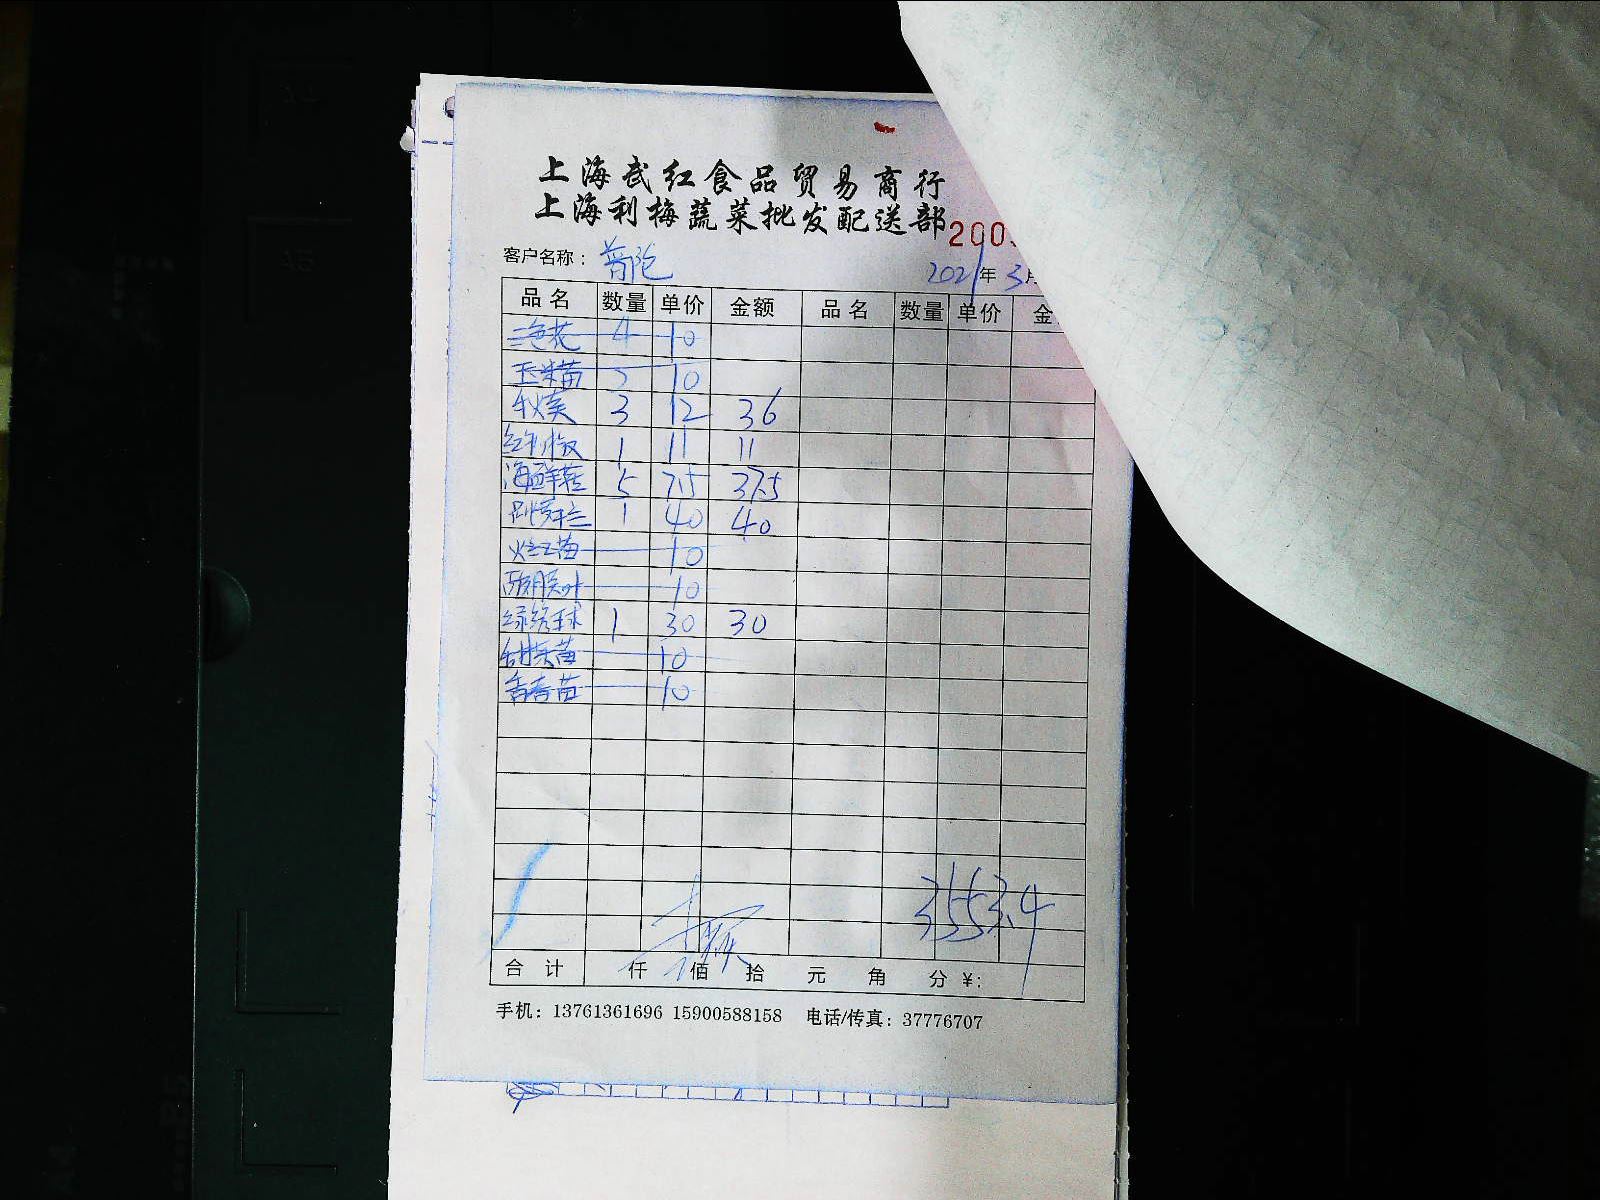 上海武红食品贸易商行
上海利梅蔬菜批发配送部
200
客户名称： 普陀 2021年3月
品名 数量 单价 金额 品名 数量 单价 金
三色花 4 10
玉米苗 5 10
秋葵 3 12 36
红 椒 1 11 11
海鲜菇 5 7.5 37.5
1 40 40
火红苗 10
10
绿 球 1 30 30
甜 苗 10
香 苗 10
3553.4
合计 仟 佰 拾 元 角 分 ¥:
手机：13761361696 15900588158 电话/传真：37776707